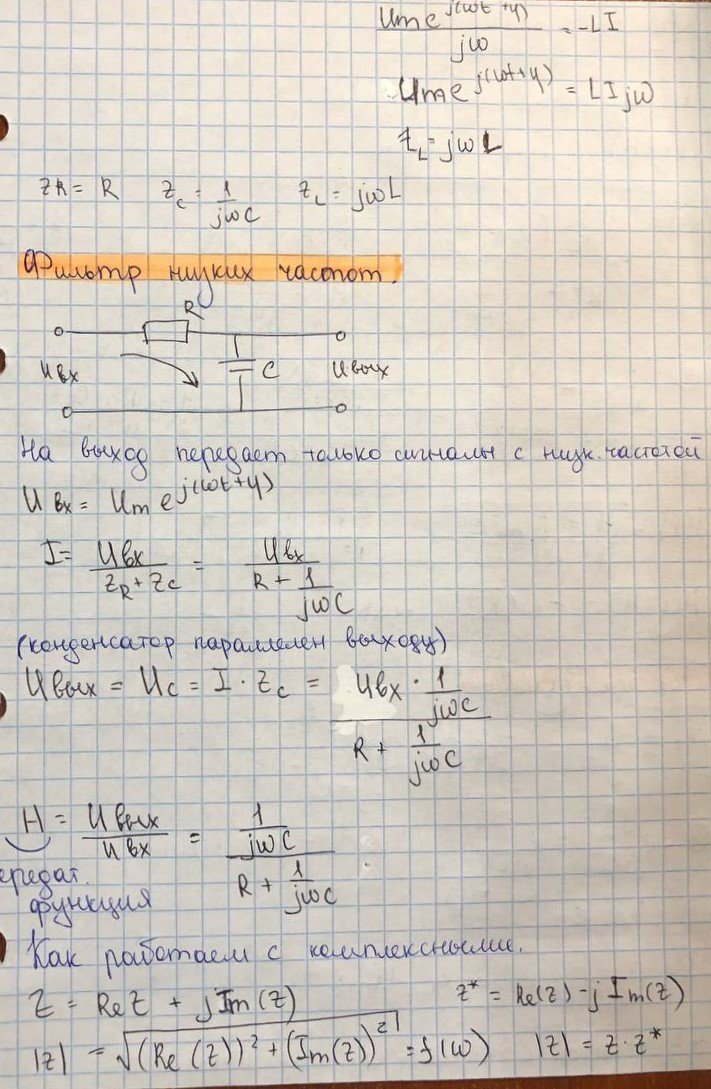 Ume^{j(ωt+φ)} / jω = -LI
Ume^{j(ωt+φ)} = LIjω
Z_L = jωL
ZR = R   Z_C = 1/jωC   Z_L = jωL
Фильтр низких частот.
R
Uвх   C   Uвых
На выход передает только сигналы с низк. частотой
Uвх = Um e^{j(ωt+φ)}
I = Uвх / (Z_R + Z_C) = Uвх / (R + 1/jωC)
(конденсатор параллелен выходу)
Uвых = U_C = I · Z_C = (Uвх · 1/jωC) / (R + 1/jωC)
H = Uвых / Uвх = (1/jωC) / (R + 1/jωC)
ередат.
функция
Как работаем с комплексными.
Z = Re Z + j Im(Z)   Z* = Re(Z) - j Im(Z)
|Z| = √((Re(Z))² + (Im(Z))²) = f(ω)   |Z| = Z · Z*